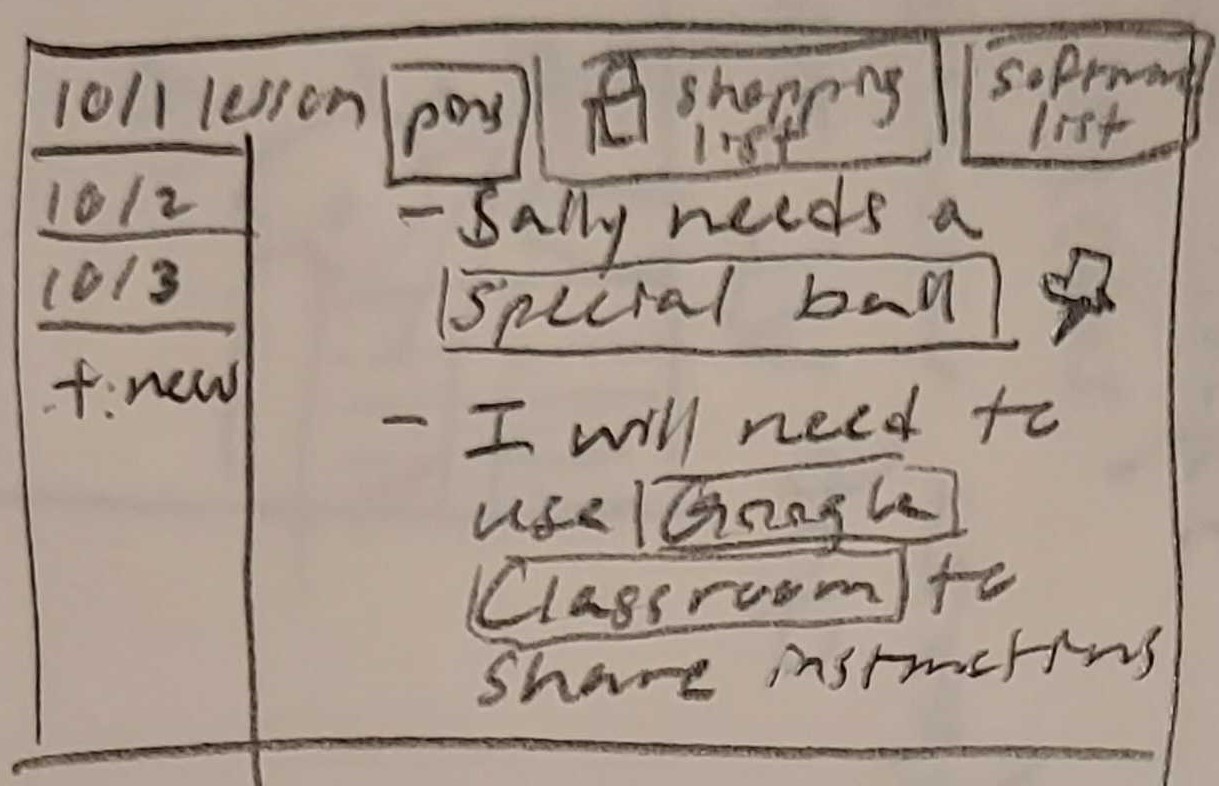 10/1 lesson
shopping
list
software
list
10/2
10/3
+ new
- Sally needs a
special ball
- I will need to
use Google
Classroom to
share instructions